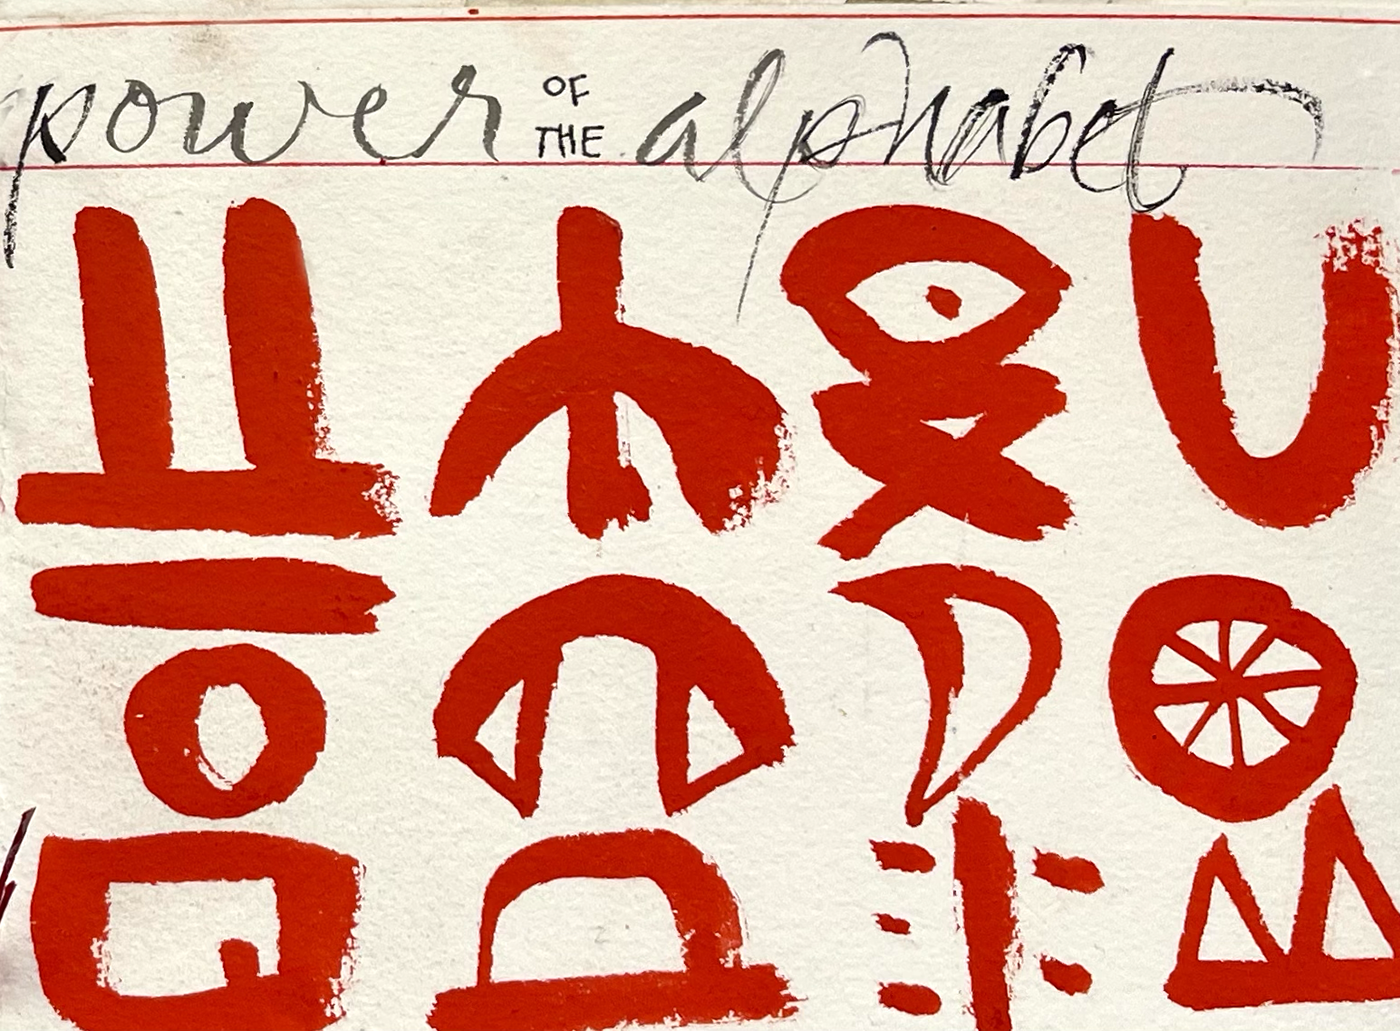 power OF THE alphabet